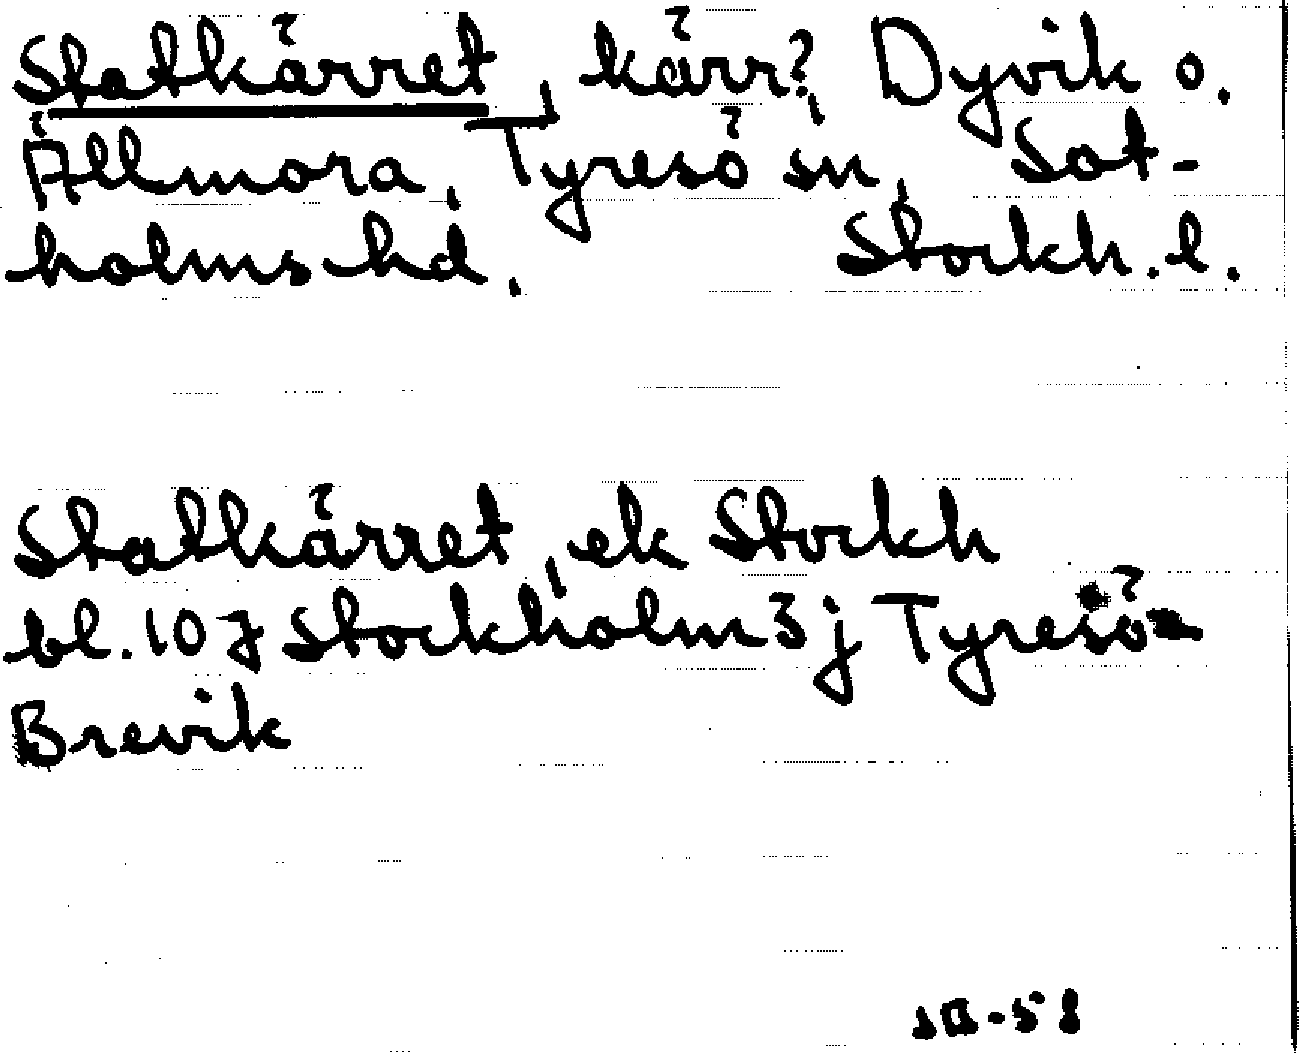 Statkärret, kärr?, Dyvik o.
Ällmora, Tyresö sn, Sot-
holms hd. Stockh. l.
Statkärret, ek Stockh
bl. 107 Stockholm 3j Tyresö-
Brevik